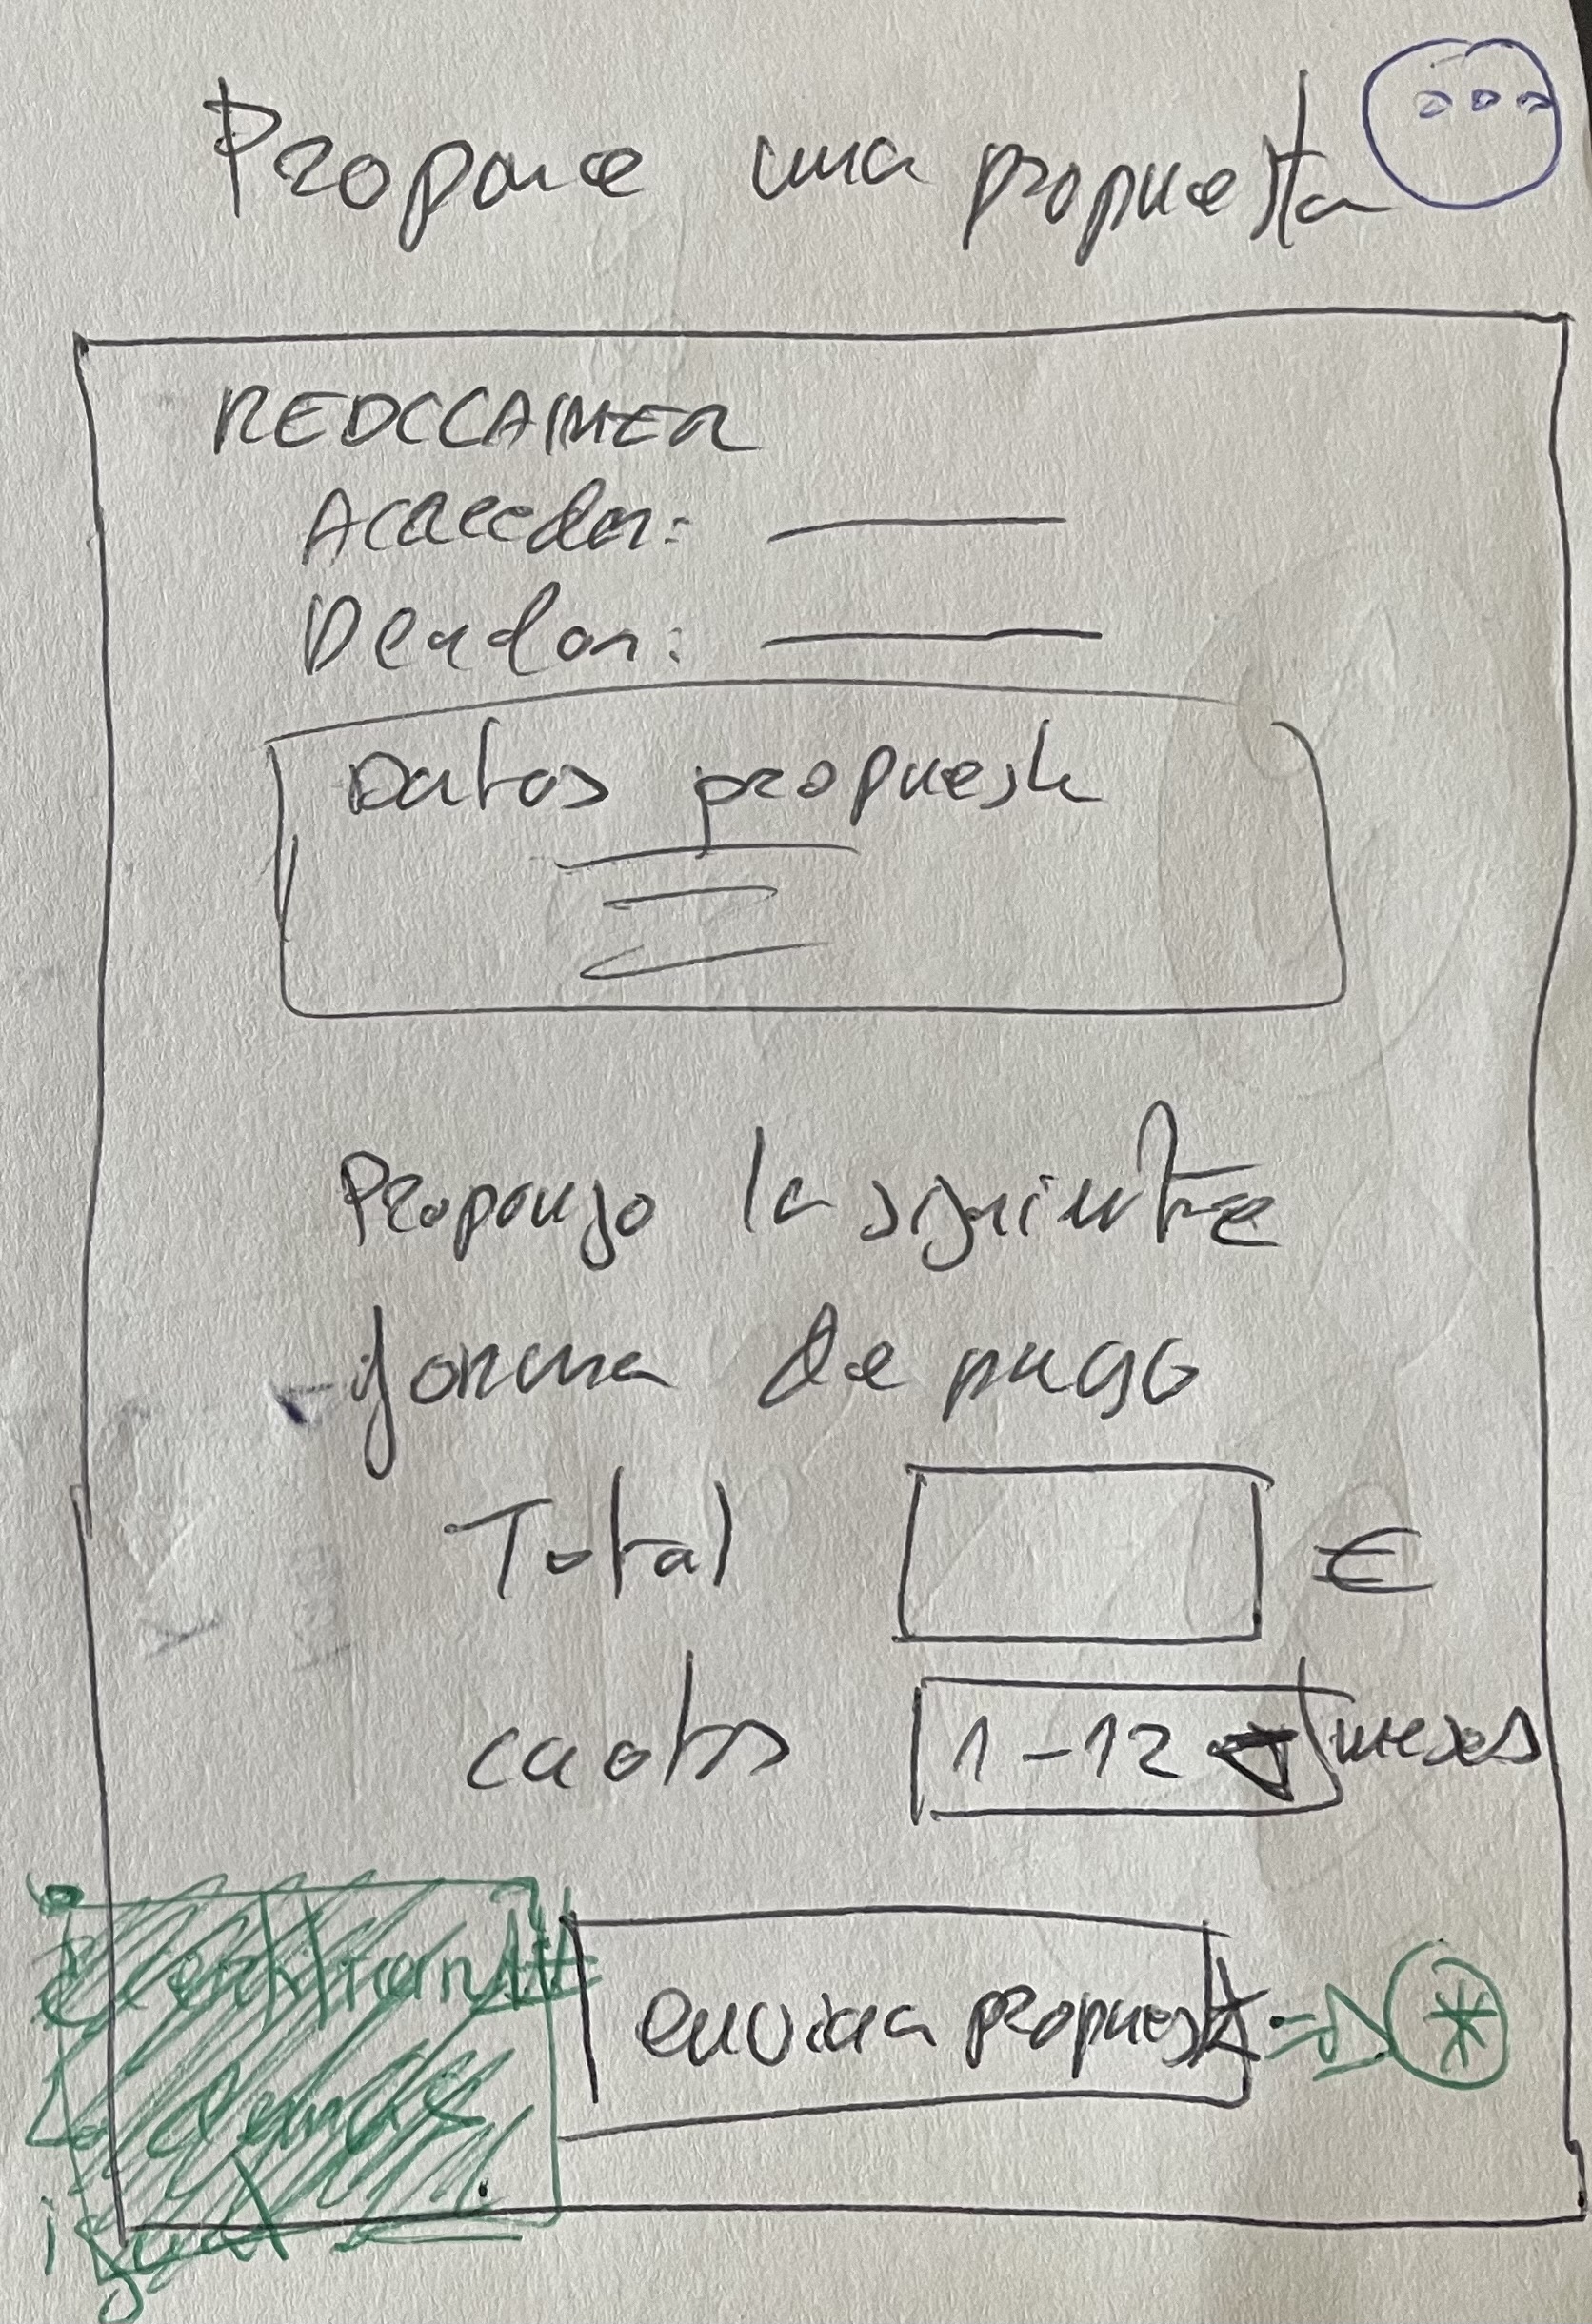 Propone una propuesta
REDCCAIMER
Acreedor:
Deudor:
Datos propuesta
Propongo la siguiente
forma de pago
Total €
cuotas 1-12 meses
enviar propuesta => *
Lo demás
igual